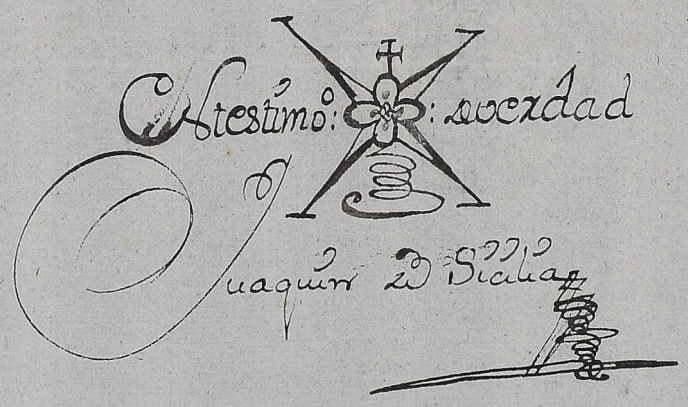 En testimo.º : : de verdad
Juaquin de Sicilia